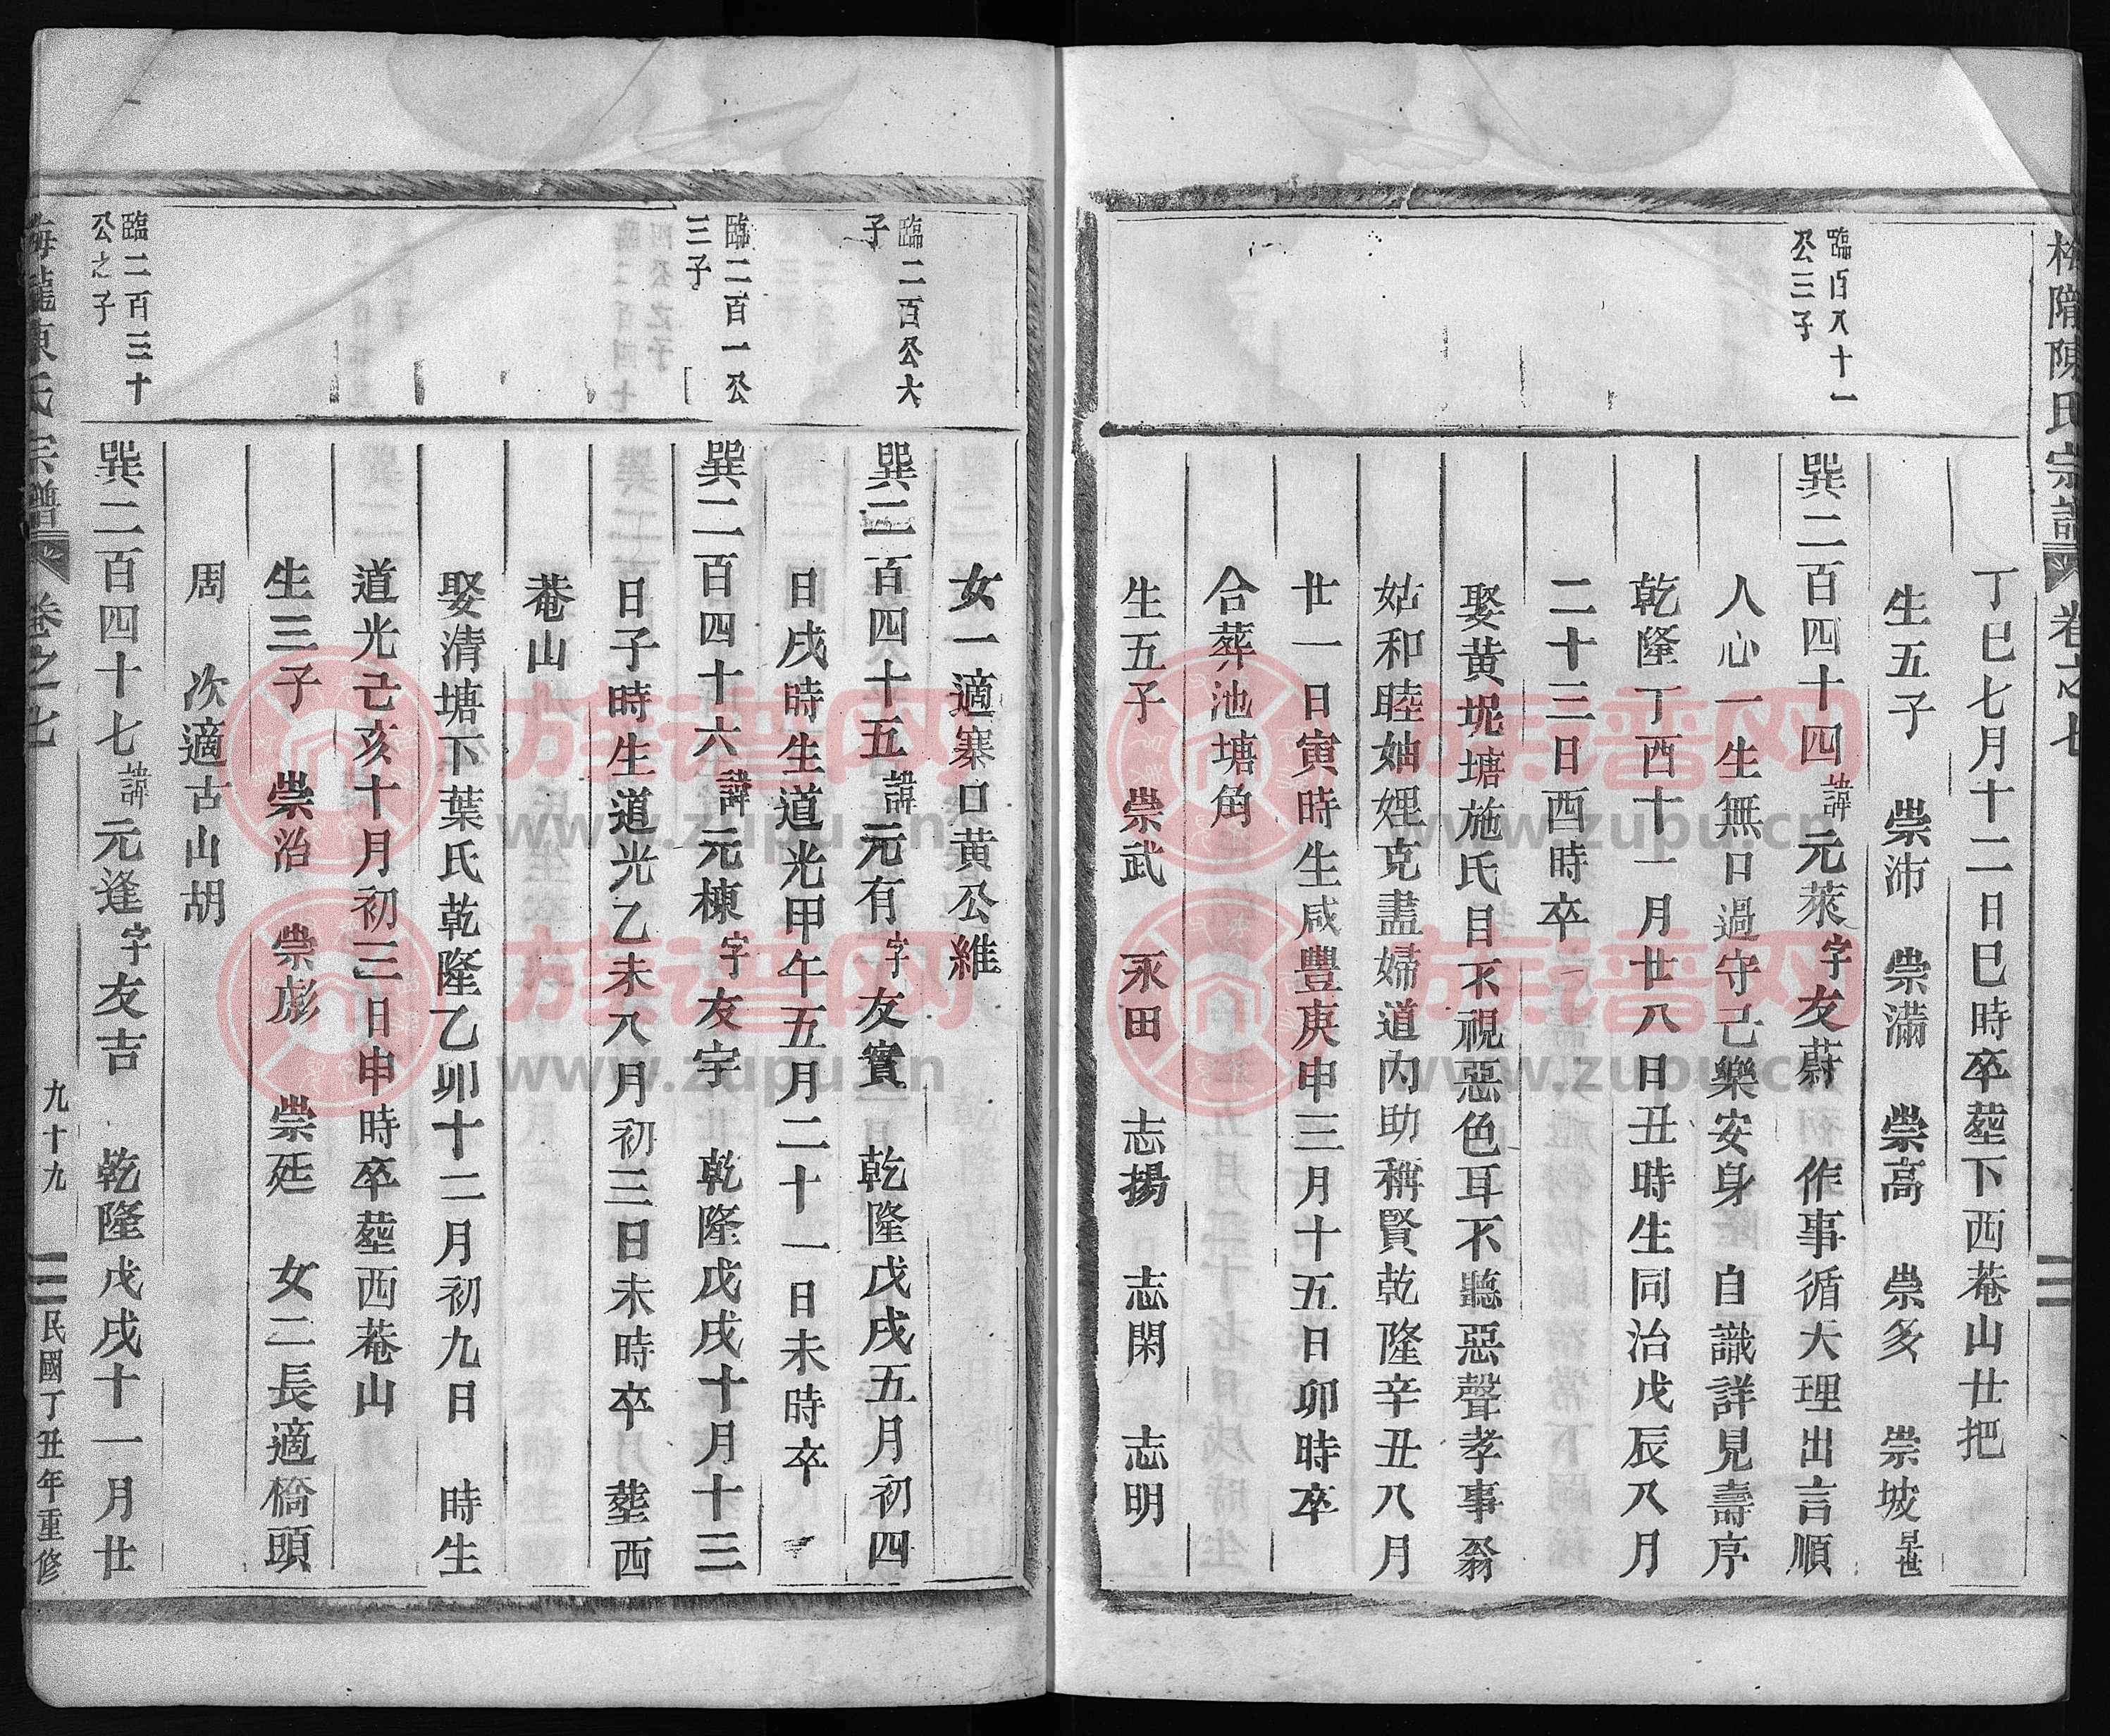 陳氏宗譜
卷之七
臨百八十一
公三子
丁巳七月十二日巳時卒塟下西菴山廿把
生五子 崇沛 崇滿 崇高 崇多 崇坡早世
巽二百四十四諱元萊字友蔚 作事循大理出言順
人心一生無口過守己樂安身 自識詳見壽序
乾隆丁酉十一月廿八日丑時生同治戊辰八月
二十三日酉時卒
娶黃坭塘施氏目不視惡色耳不聽惡聲孝事翁
姑和睦妯娌克盡婦道內助稱賢乾隆辛丑八月
廿一日寅時生咸豐庚申三月十五日卯時卒
合葬池塘角
生五子 崇武 永田 志揚 志閑 志明
臨二百公六
子
臨二百一公
三子
臨二百三十
公之子
女一適寨口黃公維
巽二百四十五諱元有字友實 乾隆戊戌五月初四
日戌時生道光甲午五月二十一日未時卒
巽二百四十六諱元棟字友宇 乾隆戊戌十月十三
日子時生道光乙未八月初三日未時卒 塟西
菴山
娶清塘下葉氏乾隆乙卯十二月初九日 時生
道光己亥十月初三日申時卒塟西菴山
生三子 崇治 崇彪 崇廷 女二長適橋頭
周 次適古山胡
巽二百四十七諱元逢字友吉 乾隆戊戌十一月廿
氏宗譜
卷之七
九十九
民國丁丑年重修
族谱网
www.zupu.cn
族谱网
www.zupu.cn
族谱网
www.zupu.cn
族谱网
www.zupu.cn